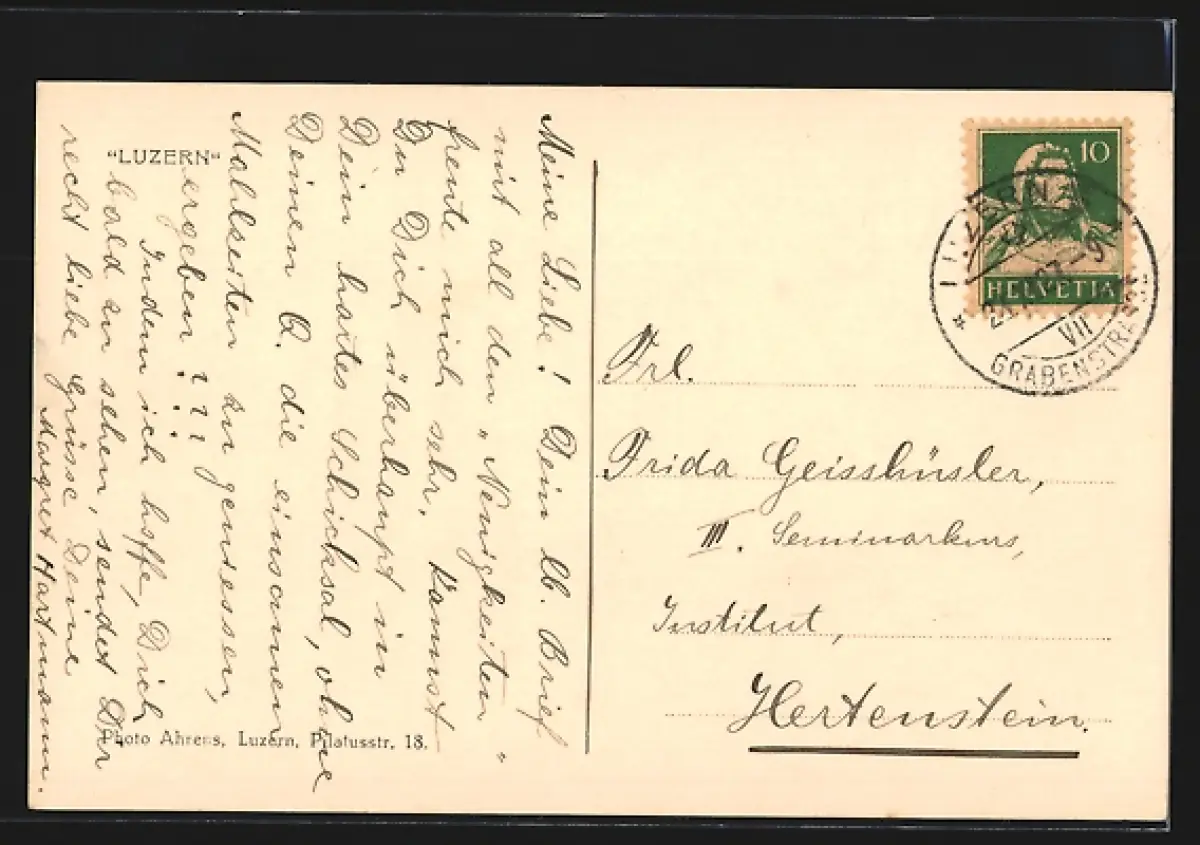 "LUZERN"
Meine Liebe! Dein lb. Brief
mit all den „Neuigkeiten"
freute mich sehr. Kannst
Du Dich überhaupt in
Dein hartes Schicksal, ohne
Deinen Q. die einsamen
Mahlzeiten zu geniessen,
ergeben ???
Indem ich hoffe, Dich
bald zu sehen, sendet Dir
recht liebe Grüsse Deine
Margret Hartmann.
Photo Ahrens, Luzern, Pilatusstr. 18.
10
HELVETIA
LUZERN
VII
GRABENSTRASSE
Frl.
Frida Geisshüsler,
III. Seminarkurs,
Institut,
Hertenstein.